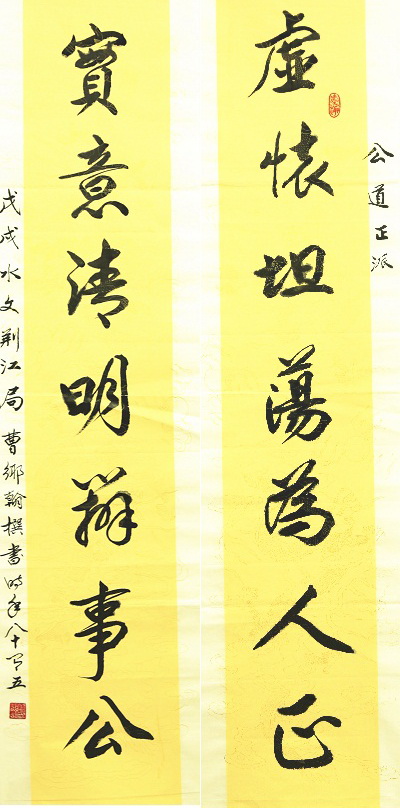 公道正派
虛懷坦蕩為人正
實意清明辦事公
戊戌水文荆江局 曹鄉翰撰書時年八十有五